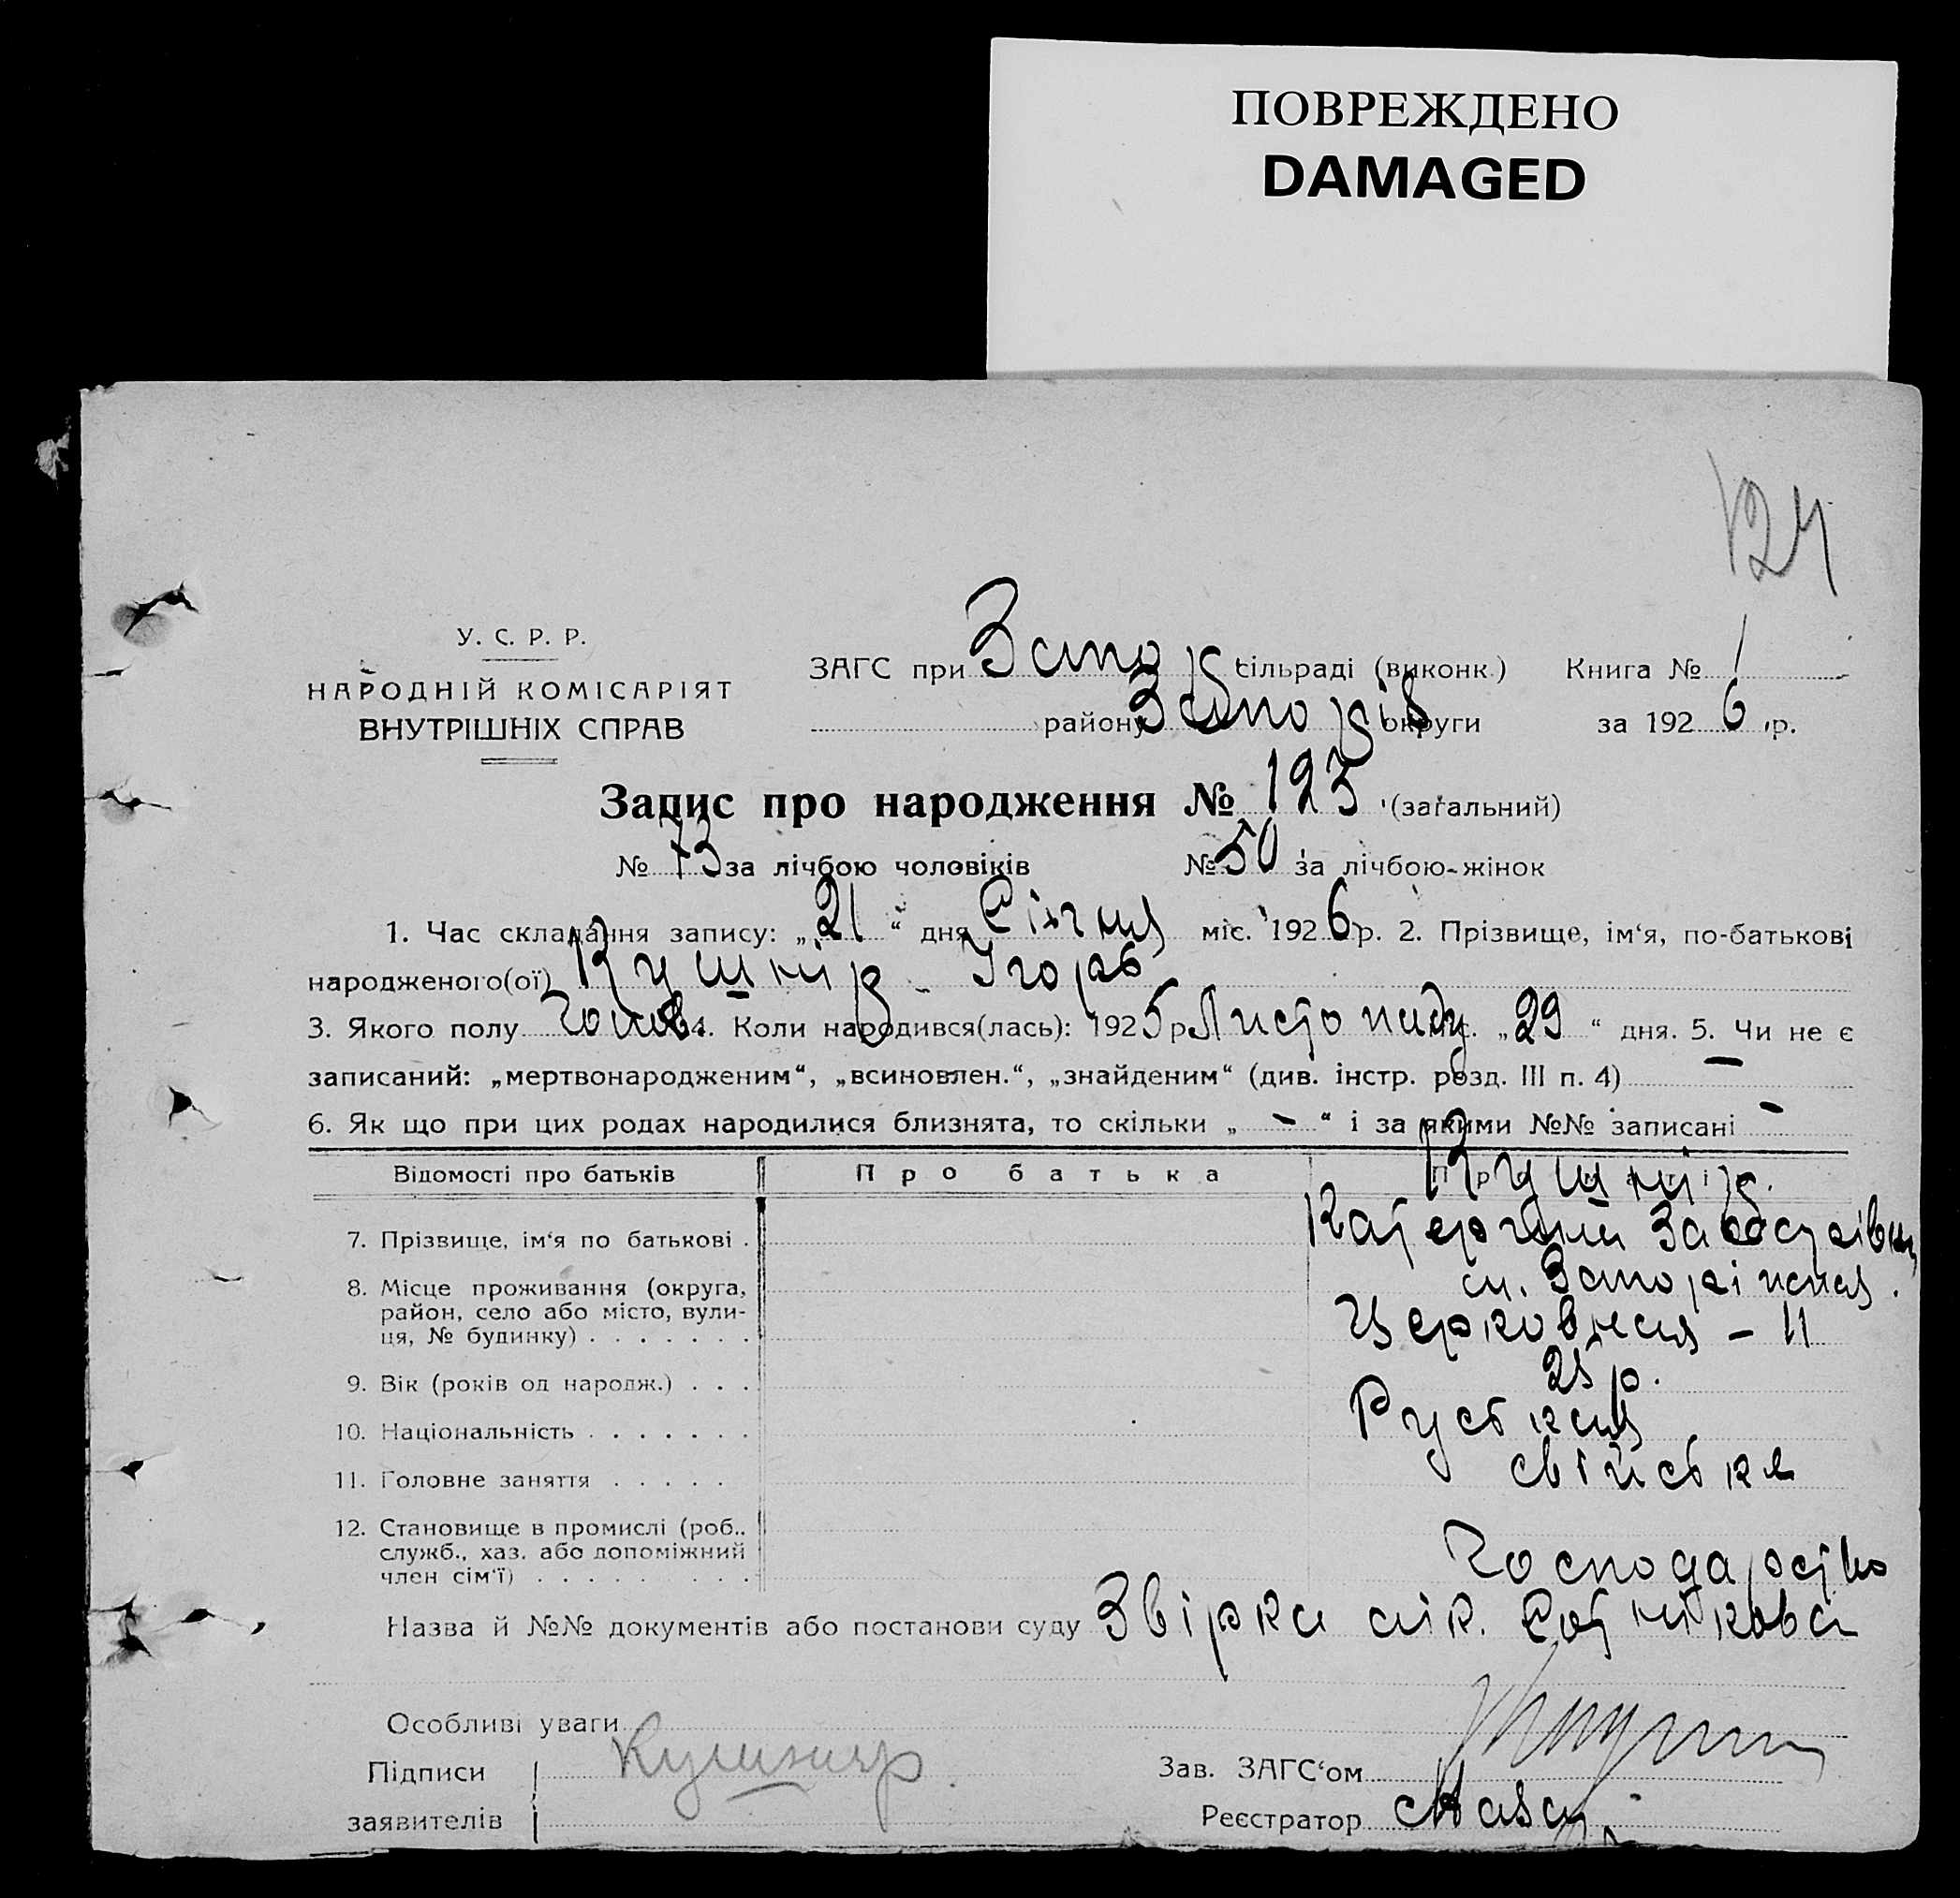 ПОВРЕЖДЕНО
DAMAGED
124
У. С. Р. Р.
НАРОДНІЙ КОМІСАРІЯТ
ВНУТРІШНІХ СПРАВ
ЗАГС при Запор сільраді (виконк.) Книга № 1
району Запоріз округи за 1926 р.
Запис про народження № 123 (загальний)
№ 73 за лічбою чоловіків № 50 за лічбою жінок
1. Час складання запису: „21“ дня Січня міс. 1926 р. 2. Прізвище, ім‘я, по-батькові
народженого(ої) Кушнір Ігорь
3. Якого полу Чолов. 4. Коли народився(лась): 1925 р. Листопаду міс. „29“ дня. 5. Чи не є
записаний: „мертвонародженим“, „всиновлен.“, „знайденим“ (див. інстр. розд. III п. 4) —
6. Як що при цих родах народилися близнята, то скільки „ — “ і за якими №№ записані —
Відомості про батьків Про батька
Кушнір
7. Прізвище, ім‘я по батькові . Катерина
8. Місце проживання (округа, м. Запоріжжя.
район, село або місто, вули-
ця, № будинку) . . . . . . . Церковная – 11
9. Вік (років од народж.) . . . 25 р.
10. Національність . . . . . . . Руська
11. Головне заняття . . . . . свійське
12. Становище в промислі (роб., служб., хаз. або допоміжний
член сім‘ї) . . . . . . . . . Господарство
Назва й №№ документів або постанови суду Звірка лік. Сотнікова
Особливі уваги
Підписи Кушнир Зав. ЗАГС‘ом
заявителів Реєстратор